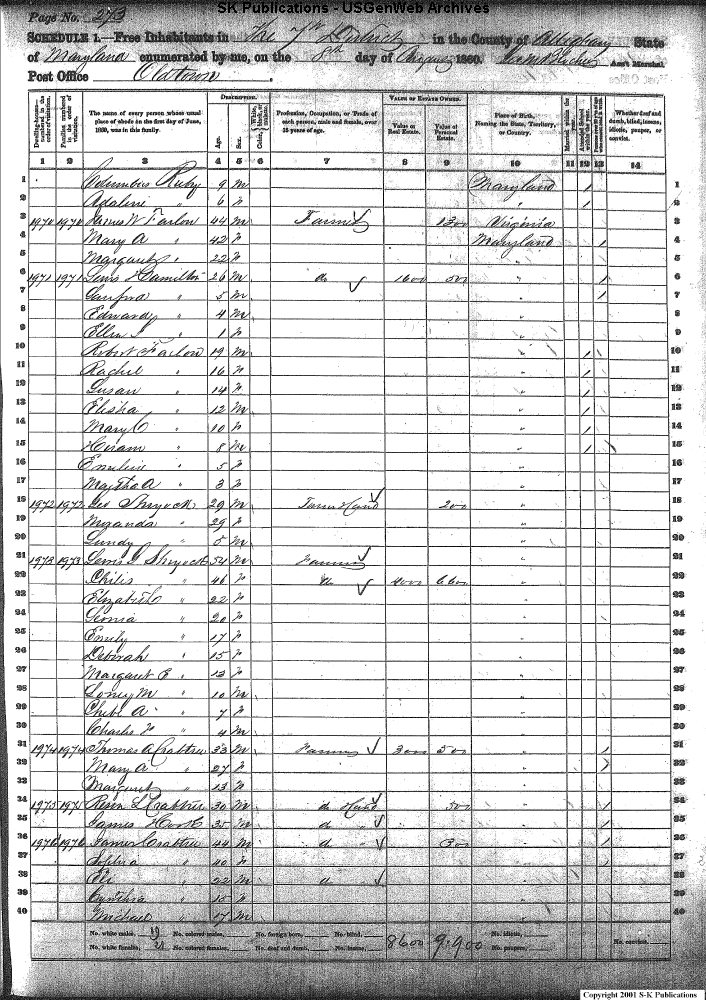 SK Publications - USGenWeb Archives
Page No. 273
SCHEDULE 1.—Free Inhabitants in The 7th District in the County of Alleghany State
of Maryland enumerated by me, on the 8th day of August 1860. Ass't Marshal.
Post Office Oldtown.
Dwelling-houses—numbered in the order of visitation.
Families numbered in the order of visitation.
The name of every person whose usual place of abode on the first day of June, 1860, was in this family.
DESCRIPTION.
Age.
Sex.
Color, White, black, or mulatto.
Profession, Occupation, or Trade of each person, male and female, over 15 years of age.
VALUE OF ESTATE OWNED.
Value of Real Estate.
Value of Personal Estate.
Place of Birth, Naming the State, Territory, or Country.
Married within the year.
Attended School within the year.
Whether deaf and dumb, blind, insane, idiotic, pauper, or convict.
1 2 3 4 5 6 7 8 9 10 11 12 13 14
1 Columbus Ruby 9 M Maryland 1 1
2 Adaline " 6 f " 1 2
3 1970 1970 James W Farlow 44 M Farming 1300 Virginia 3
4 Mary A " 42 f Maryland 1 4
5 Margaret " 22 f " 5
6 1971 1971 Lewis Hamilton 26 M do 1600 500 " 1 6
7 Sanford " 5 M " 1 7
8 Edward " 4 M " 8
9 Ellen " 1 f " 9
10 Robert Farlow 19 M " 1 10
11 Rachel " 16 f " 1 11
12 Susan " 14 f " 1 12
13 Elisha " 12 M " 1 13
14 Mary C " 10 f " 1 14
15 Hiram " 8 M " 1 15
16 Emeline " 5 f " 16
17 Martha A " 3 f " 17
18 1972 1972 Geo Shryock 29 M Farm Hand 200 " 18
19 Miranda " 29 f " 19
20 Lundy " 5 M " 20
21 1973 1973 Lewis Shryock 54 M Farming " 21
22 46 f do 4000 6600 " 22
23 Elizabeth " 22 f " 23
24 " 20 f " 24
25 Emily " 17 f " 25
26 Deborah " 15 f " 26
27 Margaret E " 13 f " 27
28 M " 10 M " 28
29 A " 7 f " 29
30 Charles " 4 M " 30
31 1974 1974 Thomas A Crabtree 33 M Farming 3000 500 " 1 31
32 Mary A " 27 f " 32
33 Margaret " 13 f " 33
34 1975 1975 Resin L Crabtree 30 M d Hand 500 " 1 34
35 James 35 M d " " 1 35
36 1976 1976 James Crabtree 44 M d " 300 " 1 36
37 Sophia " 40 f " 1 37
38 22 M d " 38
39 Cynthia " 15 f " 39
40 Michael " 17 M " 40
No. white males, 19 No. colored males, No. foreign born, No. blind, 8600 9.900 No. idiotic,
No. white females, 21 No. colored females, No. deaf and dumb, No. insane, No. paupers, No. convicts,
Copyright 2001 S-K Publications